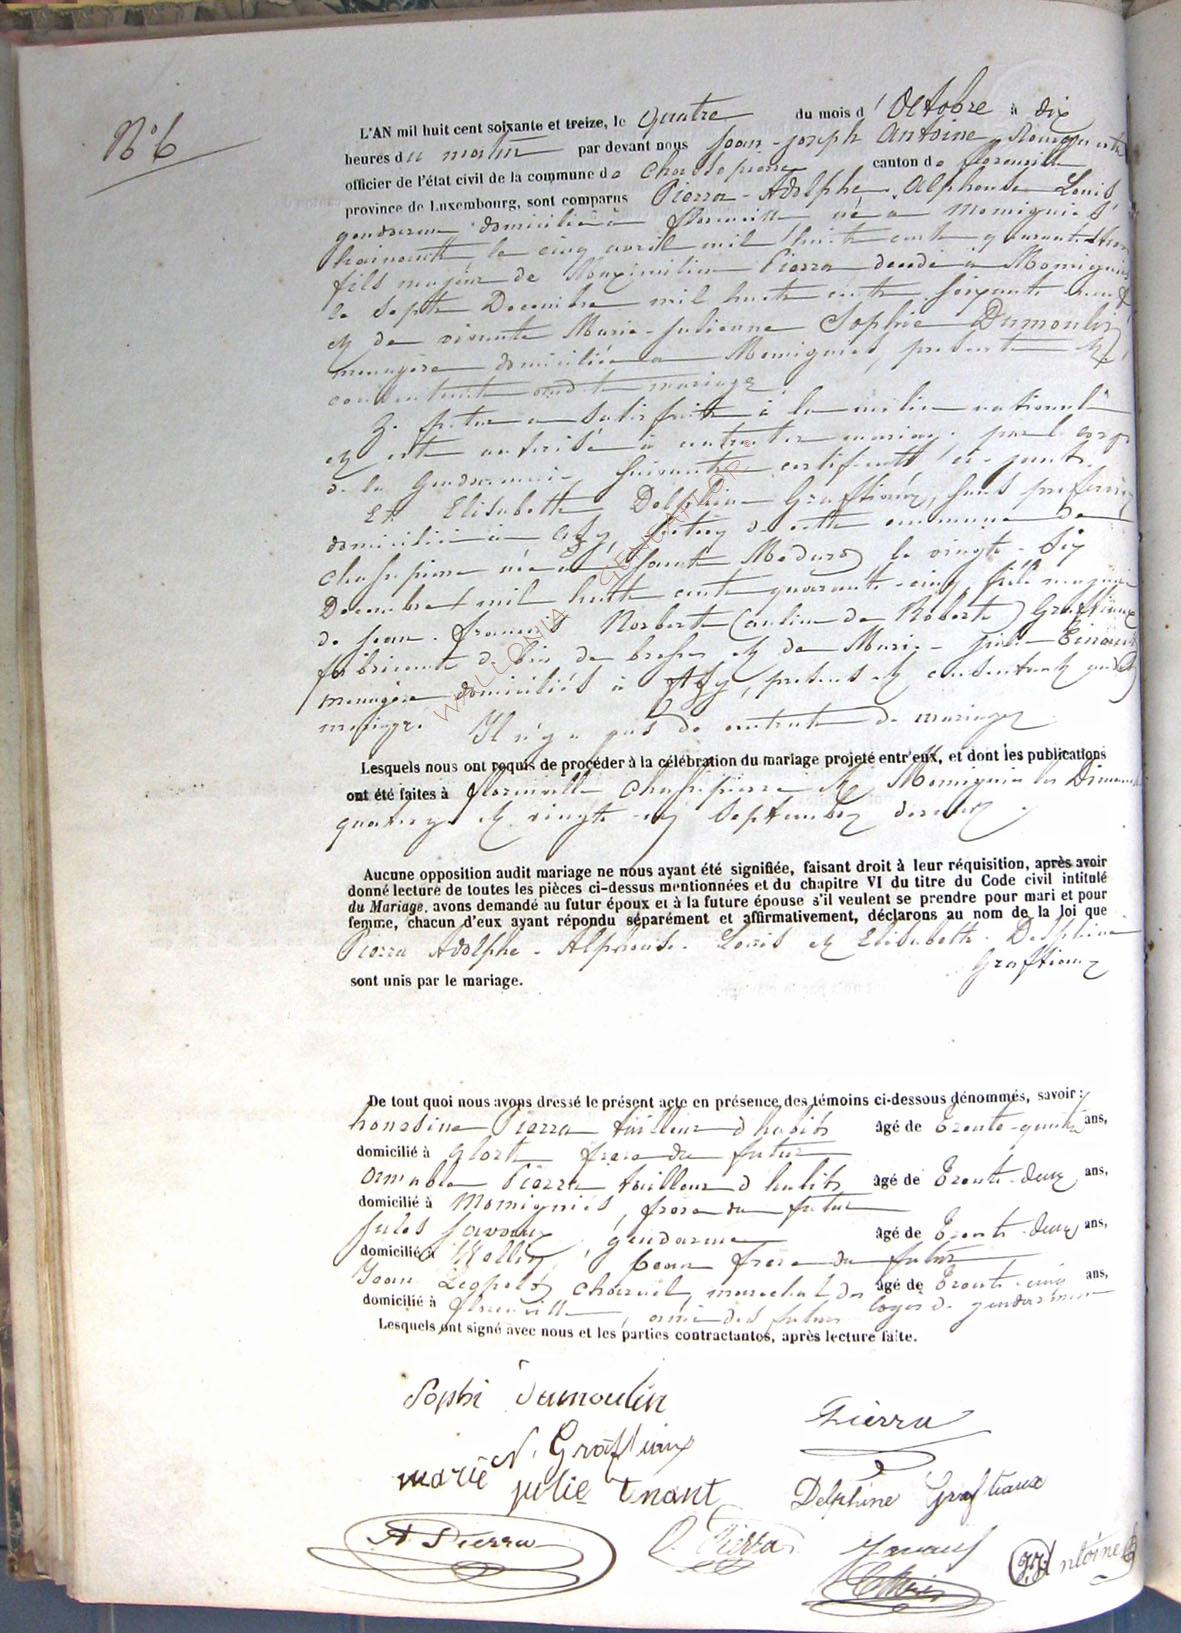 N° 6
L'AN mil huit cent soixante et treize, le quatre du mois d'Octobre à dix
heures du matin par devant nous Jean-Joseph Antoine, Bourgmestre
officier de l'état civil de la commune de Chassepierre canton de florenville
province de Luxembourg, sont comparus Pierra-Adolphe-Alphonse Louis
gendarme domicilié à florenville né à Momignies
hainautt le cinq avril mil huitt centt quarante
fils majeur de Maximilien Pierra décédé à Momignies
le septt Decembre mil huitt centt soixante
et de vivante Marie-Julienne Sophie Dumoulin
menagère domiciliée à Momignies, présente et
consentante audit mariage
Le futur a satisfaitt à la milice nationale
et estt autorisé à contracter mariage par le corps
de la Gendarmerie suivantt certificatt ci-joint.
Et Elisabeth Delphine Graftiaux, sans profession
domiciliée à Azy, section de cette commune de
Chassepierre née à Saintt Medard, le vingt-six
Decembre mil huitt centt quarante-cinq, fille majeure
de Jean-françois Norbert (au lieu de Robertt) Graftiaux
fabricantt de bois de brosses et de Marie-Julie
menagère domiciliés à Azy, présents et consentantt audit
mariage. Il n'y a pas de contratt de mariage
Lesquels nous ont requis de procéder à la célébration du mariage projeté entr'eux, et dont les publications
ont été faites à florenville Chassepierre et Momignies les Dimanches
quatorze et vingt-et septembre dernier.
Aucune opposition audit mariage ne nous ayant été signifiée, faisant droit à leur réquisition, après avoir
donné lecture de toutes les pièces ci-dessus mentionnées et du chapitre VI du titre du Code civil intitulé
du Mariage, avons demandé au futur époux et à la future épouse s'il veulent se prendre pour mari et pour
femme, chacun d'eux ayant répondu séparément et affirmativement, déclarons au nom de la loi que
Pierra Adolphe-Alphonse-Louis et Elisabeth-Delphine
Graftiaux
sont unis par le mariage.
De tout quoi nous avons dressé le présent acte en présence des témoins ci-dessous dénommés, savoir :
Pierra tailleur d'habits âgé de Trente-quatre ans,
domicilié à frere du futur
Aimable Pierra tailleur d'habits âgé de Trente-deux ans,
domicilié à Momignies, frere du futur
Jules gendarme âgé de Trente-deux ans,
domicilié à Wellin, beau frere du futur
Jean Léopold marechal des âgé de Trente-cinq ans,
domicilié à florenville, amie des futurs logis de gendarmerie
Lesquels ont signé avec nous et les parties contractantes, après lecture faite.
Sophi dumoulin
Pierra
N. Graftiaux
marie julie tnant
Delphine Graftiaux
A Pierra
Pierra
JJ Antoine
WALLONIA GENEANET.ORG